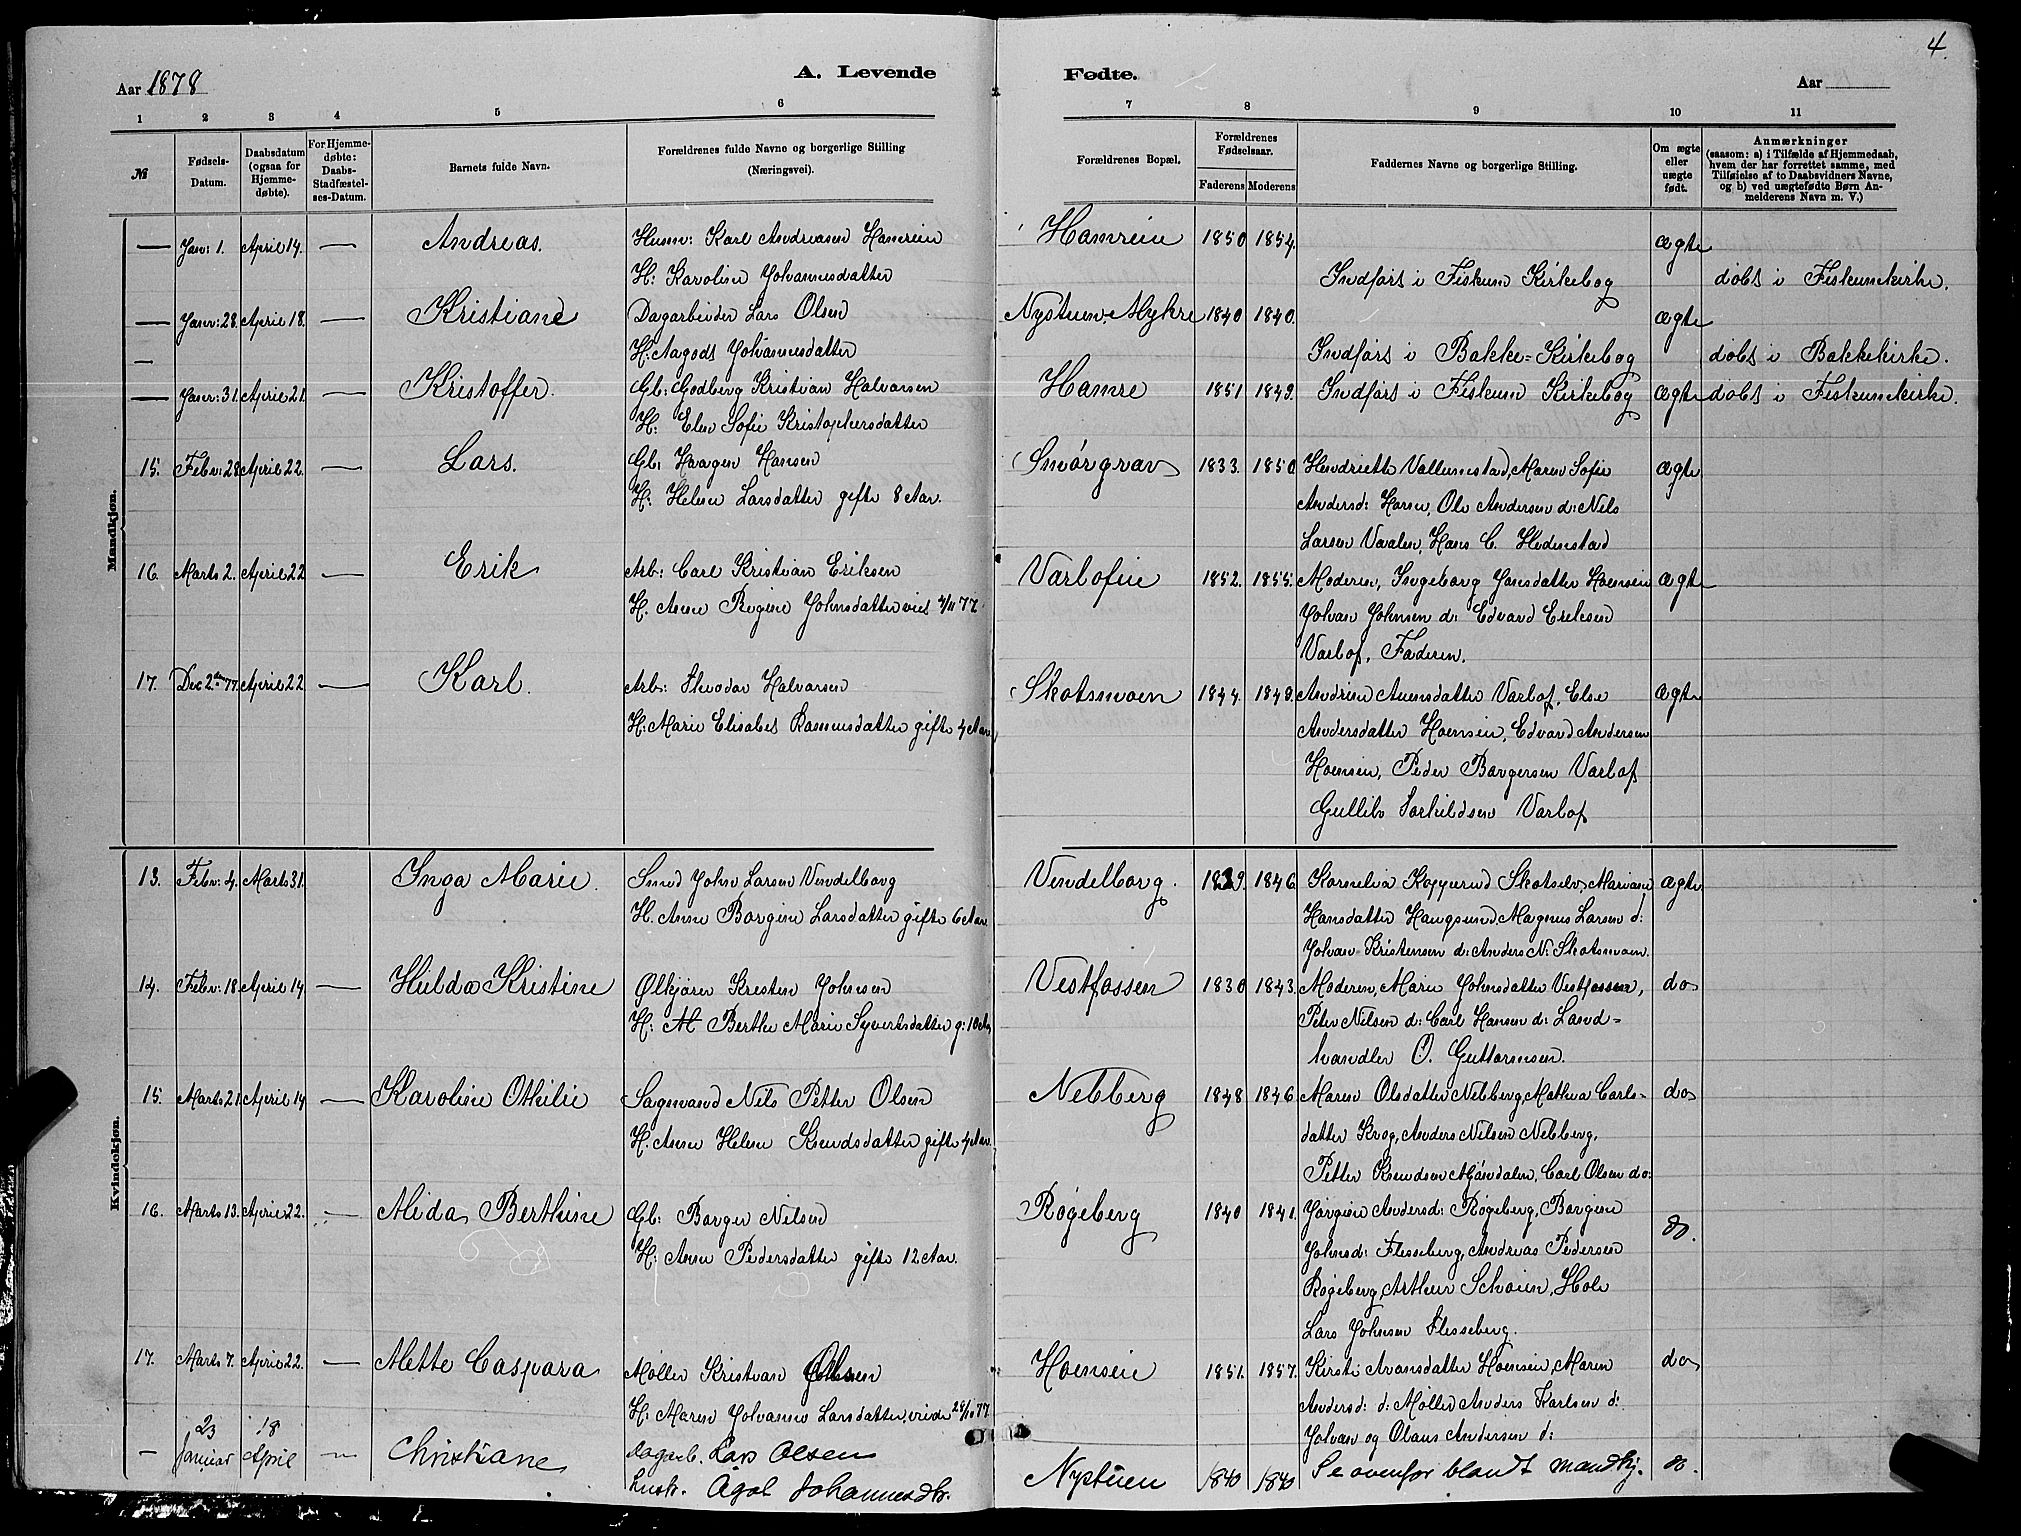 4.
Aar 1878
A. Levende
Fødte.
Aar
1 2 3 4 5 6 7 8 9 10 11
№
Fødsels-Datum.
Daabsdatum (ogsaa for Hjemmedøbte).
For Hjemmedøbte: Daabs-Stadfæstelses-Datum.
Barnets fulde Navn.
Forældrenes fulde Navne og borgerlige Stilling (Næringsvei).
Forældrenes Bopæl.
Forældrenes Fødselsaar.
Faderens Moderens
Faddernes Navne og borgerlige Stilling.
Om ægte eller uægte født.
Anmærkninger (saasom: a) i Tilfælde af Hjemmedaab, hvem der har forrettet samme, med Tilføielse af to Daabsvidners Navne, og b) ved uægtefødte Børn Anmelderens Navn m. V.)
Mandkjøn.
— Janv: 1. April 14. — Andreas. Husm: Karl Andreasen Hamrein Hamrein 1850 1854. ægte
H: Karoline Johannesdatter Indførs i Fiskum Kirkebog døbt i Fiskumkirke.
— Janv: 28. April 18. — Kristiane Dagarbeider Lars Olsen Nystuen, Mykre 1840 1840. ægte
— H: Aagodt Johannesdatter Indførs i Bakke=Kirkebog døbt i Bakkekirke.
— Janv: 31. April 21. — Kristoffer. Gb: Godberg Kristian Halvorsen Hamre 1851 1849. Indførs i Fiskum Kirkebog ægte døbt i Fiskumkirke.
H: Elen Sofie Kristophersdatter
15. Febr: 28. April 22. — Lars. Gb: Haagen Hansen Smørgrav 1833. 1850 Hendriette Vallumstad, Maren Sofie ægte
H: Helene Larsdatter gifte 8 Aar. Andersd: Horne, Ole Andersen d: Nils
Larsen Vaalen, Hans C. Hedenstad
16. Marts 2. April 22 — Erik Arb: Carl Kristian Eriksen Varlofeie 1852. 1855. Moderen, Ingeborg Jansdatter Hoenseie ægte
H. Anne Regine Johnsdatter viet 2/11 77. Johan Johnsen d: Edvard Eriksen
Varlof, Faderen.
17. Dec 2den 77. April 22 — Karl. Arb: Theodor Halvorsen Skotsmoen 1844. 1848. Andrine Avensdatter Varlof, Else ægte
H: Marie Elisabet Rasmusdatter gifte 4 Aar Andersdatter Hoensein, Edvard Andersen
Hoensein, Peder Borgersen Varlof
Gullik Torkildsen Varlof
Kvindekjøn.
13. Febr: 4. Marts 31. Inga Marie. Smed John Larsen Vendelborg Vendelborg. 1839. 1846. Kornelia Kopperud Skotselv, Mariane ægte
H. Anne Borgine Larsdatter gifte 6 Aar. Hansdatter Haugsund, Magnus Larsen d:
Johan Kristensen d: Anders N: Skotsmoen.
14. Febr: 18. April 14 — Hulda Kristine Ølkjører Kresten Johnsen Vestfossen 1830 1843. Moderen, Marie Johnsdatter Vestfossen, do
H: M Berthe Marie Syvertsdatter g: 10 Aar Peter Nilsen d: Carl Hansen d: Land=
handler O. Guttormsen.
15. Marts 21. April 14 — Karoline Othilie Sagmand Nils Petter Olsen Nebberg 1848 1846. Maren Olsdatter Nebberg, Mathea Carls= do
H. Anne Helene Knudsdatter gifte 4 Aar. datter Krog, Anders Nilsen Nebberg.
Petter Knudsen Mjøndalen, Carl Olsen do:
16. Marts 13. April 22. — Alida Berthine Gb: Borger Nilsen Røgeberg 1840 1841. Jørgine Andersd: Røgeberg, Borgine do.
H: Anne Pedersdatter gifte 12 Aar. Johnsd: Flesseberg, Andreas Pedersen
Røgeberg, Arthur Schøien, Hole
Lars Johnsen Flesseberg.
17. Marts 7. April 22. — Mette Caspara Møller Kristian Olsen Hoenseie 1851. 1857. Kirsti Avansdatter Hoensein, Maren do
H: Maren Johanne Larsdatter, viede 28/10 77. Andersd: d: Møller Anders Karlsen d:
Johan og Olaus Andersen d:
— 23 Januar 18 April — Christiane dagarb. Lars Olsen Nystuen 1840 1840 Se ovenfor blandt mandkj. do.
hustr. Agot Johannesdtr.